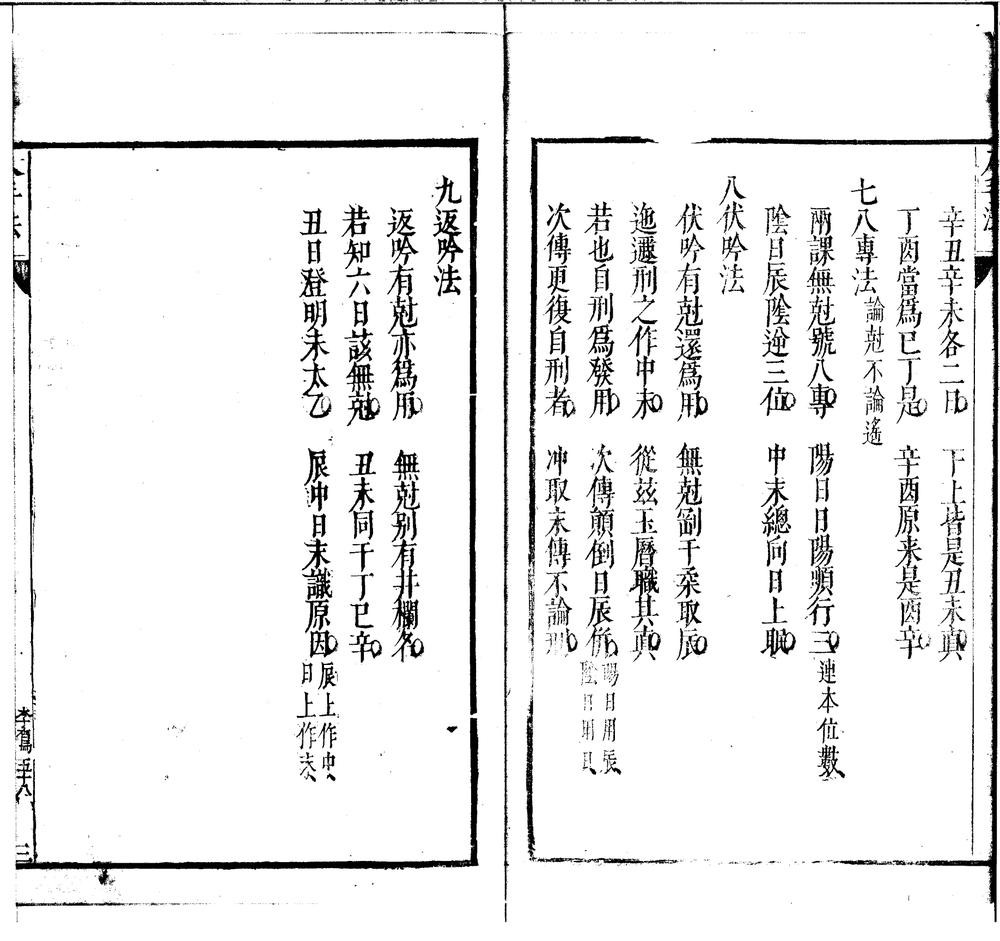 辛丑辛未各二日　下上皆是丑未真
丁酉當爲巳丁是　辛酉原来是酉辛
七八專法論尅不論遙
兩課無尅號八專　陽日日陽順行三連本位數
陰日辰陰逆三位　中末總向日上眠
八伏吟法
伏吟有尅還爲用　無尅剛干柔取辰
迤邐刑之作中末　從兹玉曆職其真
若也自刑爲發用　次傳顛倒日辰併陽日用辰陰日用日
次傳更復自刑者　冲取末傳不論刑
九返吟法
返吟有尅亦爲用　無尅别有井欄名
若知六日該無尅　丑未同干丁巳辛
丑日登明未太乙　辰中日末識原因辰上作中日上作末
三